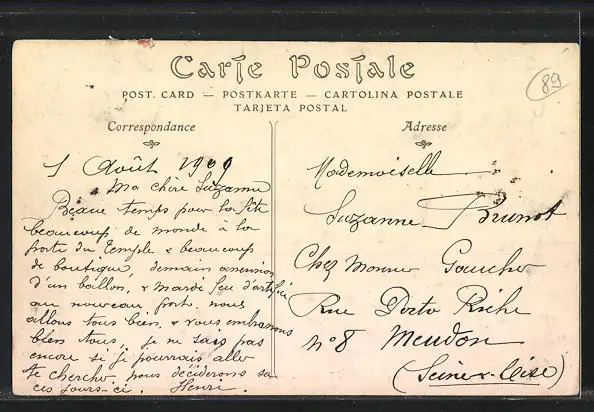 89
Carte Postale
POST. CARD — POSTKARTE — CARTOLINA POSTALE
TARJETA POSTAL
Correspondance
1 Août 1909
Ma chère Suzanne
Beau temps pour la fête
beaucoup de monde à la
porte du Temple & beaucoup
de boutique, demain ascension
d'un ballon, & Mardi feu d'artifice
au nouveau port. nous
allons tous bien & vous embrassons
bien tous, je ne sais pas
encore si je pourrais aller
te chercher, nous déciderons sa
ces jours-ci. Henri.
Adresse
Mademoiselle
Suzanne Brunot
Chez Monsieur Gaucher
Rue Porto Riche
n° 8 Meudon
(Seine & Oise)